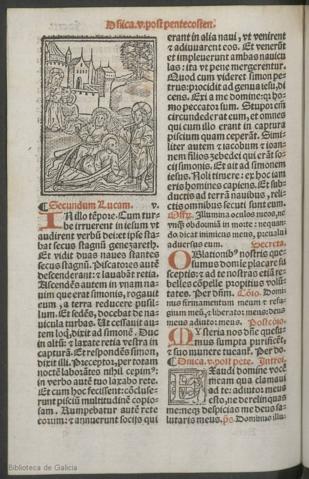 Dñica.v.post pentecosten.
Secundum Lucam. v.
IN illo tẽpore. Cum tur-
be irruerent in iesum vt
audirent verbũ dei: et ipse sta-
bat secus stagnũ genezareth.
Et vidit duas naues stantes
secus stagnũ. Piscatores autẽ
descenderant: et lauabãt retia.
Ascendẽs autem in vnam na-
uim que erat simonis, rogauit
eum a terra reducere pusil-
lum. Et sedẽs, docebat de na-
uicula turbas. Ut cessauit au-
tem loqui, dixit ad simonẽ. Duc
in altũ: et laxate retia vestra in
capturã. Et respondẽs simon,
dixit illi. Preceptor, per totam
noctẽ laborãtes nihil cepimus:
in verbo autẽ tuo laxabo rete.
Et cum hoc fecissent: cõcluse-
runt pisciũ multitudinẽ copio-
sam. Rumpebatur autẽ rete
eorum: et annuerunt socijs qui
erant in alia naui, vt venirent
et adiuuarent eos. Et venerũt
et impleuerunt ambas nauicu-
las: ita vt pene mergerentur.
Quod cum videret simon pe-
trus: procidit ad genua iesu, di-
cens. Exi a me domine: quia ho-
mo peccator sum. Stupor enim
circundederat eum, et omnes
qui cum illo erant in captura
piscium quam ceperãt. Simi-
liter autem et iacobum et ioan-
nem filios zebedei qui erãt so-
cij simonis. Et ait ad simonem
iesus. Noli timere: ex hoc iam
eris homines capiens. Et sub-
ductis ad terrã nauibus, reli-
ctis omnibus secuti sunt eum.
Illumina oculos meos, ne
vnquã obdormiã in morte: nequan-
do dicat inimicus meus, preualui
aduersus eum. Secreta.
OBlationibus nostris que-
sumus domine placare su-
sceptis: et ad te nostras etiã re-
belles cõpelle propitius volũ-
tates. Per dñm. Cõio. Domi-
nus firmamentum meum et refu-
gium meũ, et liberator meus: deus
meus adiutor meus. Postcõio.
MYsteria nos dñe quesu-
mus sumpta purificẽt,
et suo munere tueantur. Per do.
Dñica.vi. post pẽte. Introi.
EXaudi domine vocẽ
meam qua clamaui
ad te: adiutor meus
esto, ne derelinquas
me: neque despicias me deus sa-
lutaris meus. ps. Dominus illu-
Biblioteca de Galicia